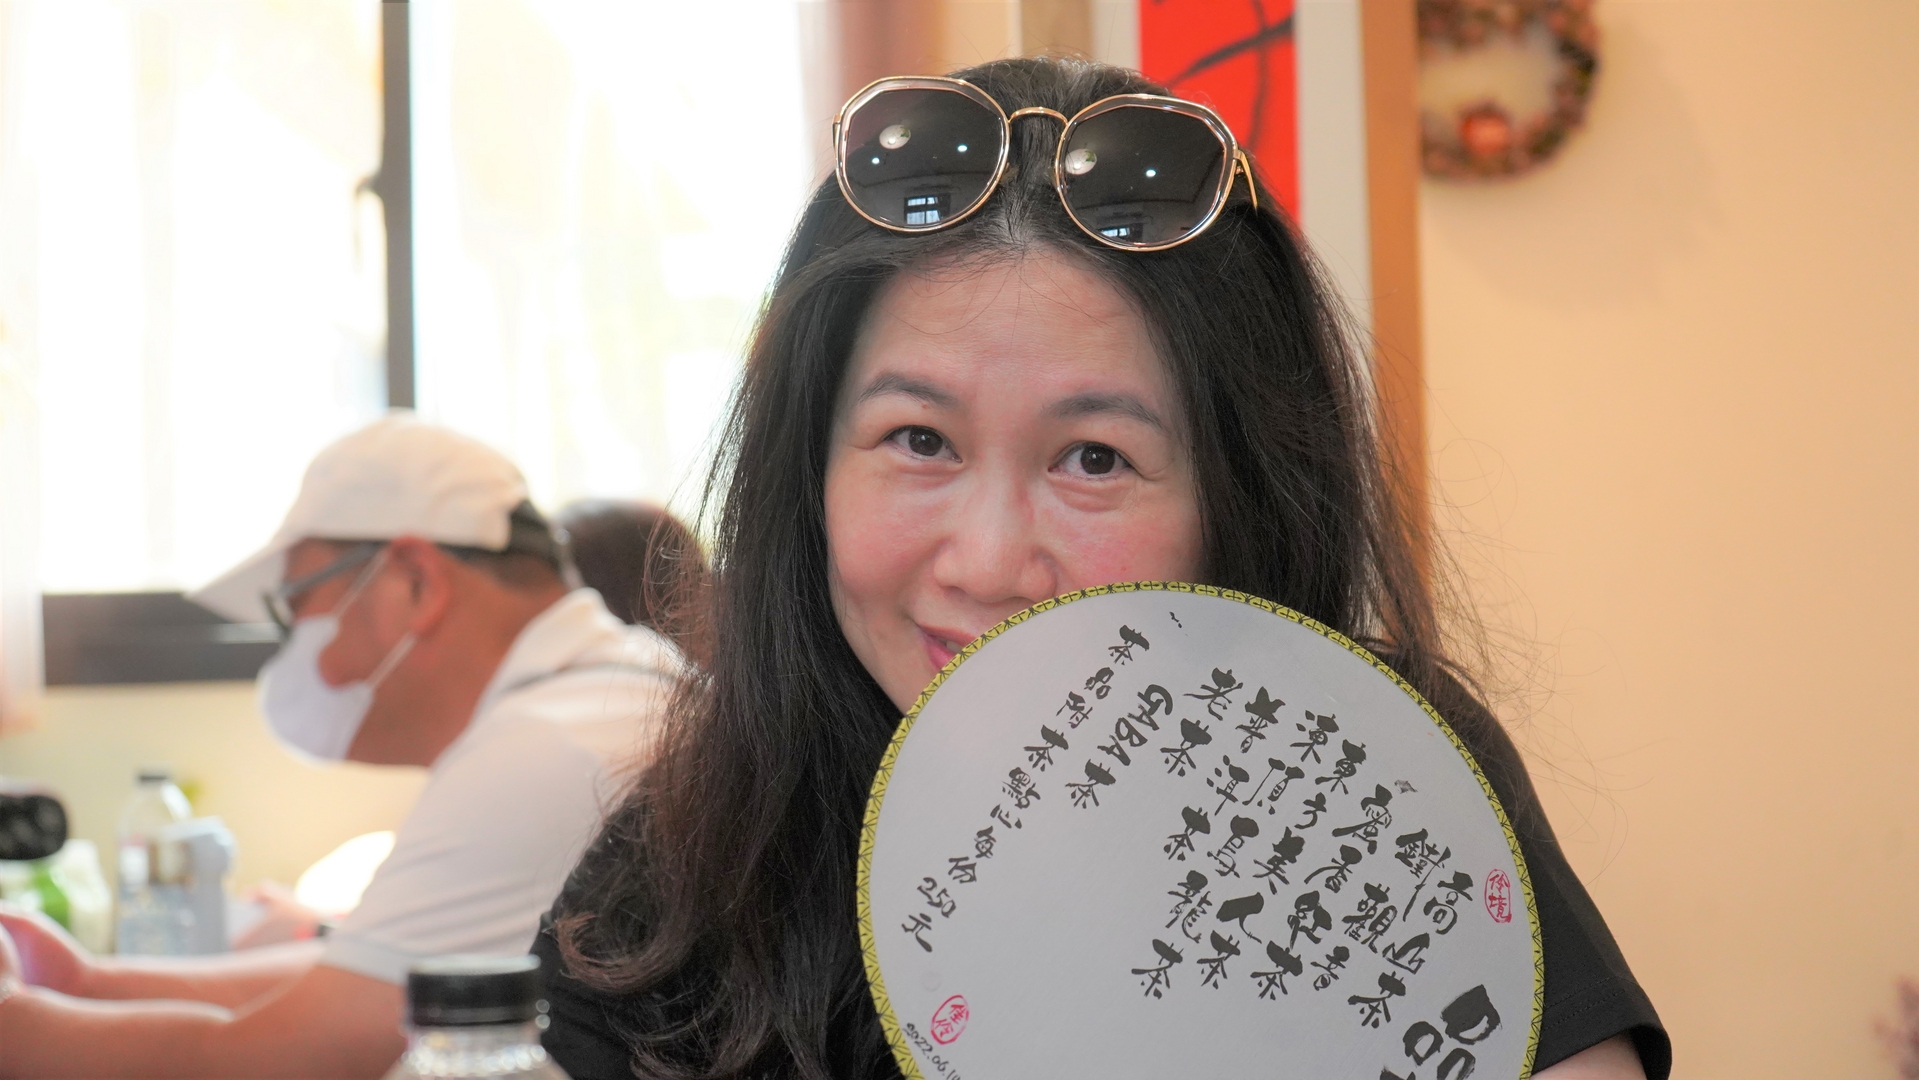 品
高山茶
鐵觀音
蜜香紅茶
東方美人茶
凍頂烏龍茶
普洱茶
老茶
GABA茶
茶品附茶點心每份250元
2022.06.1